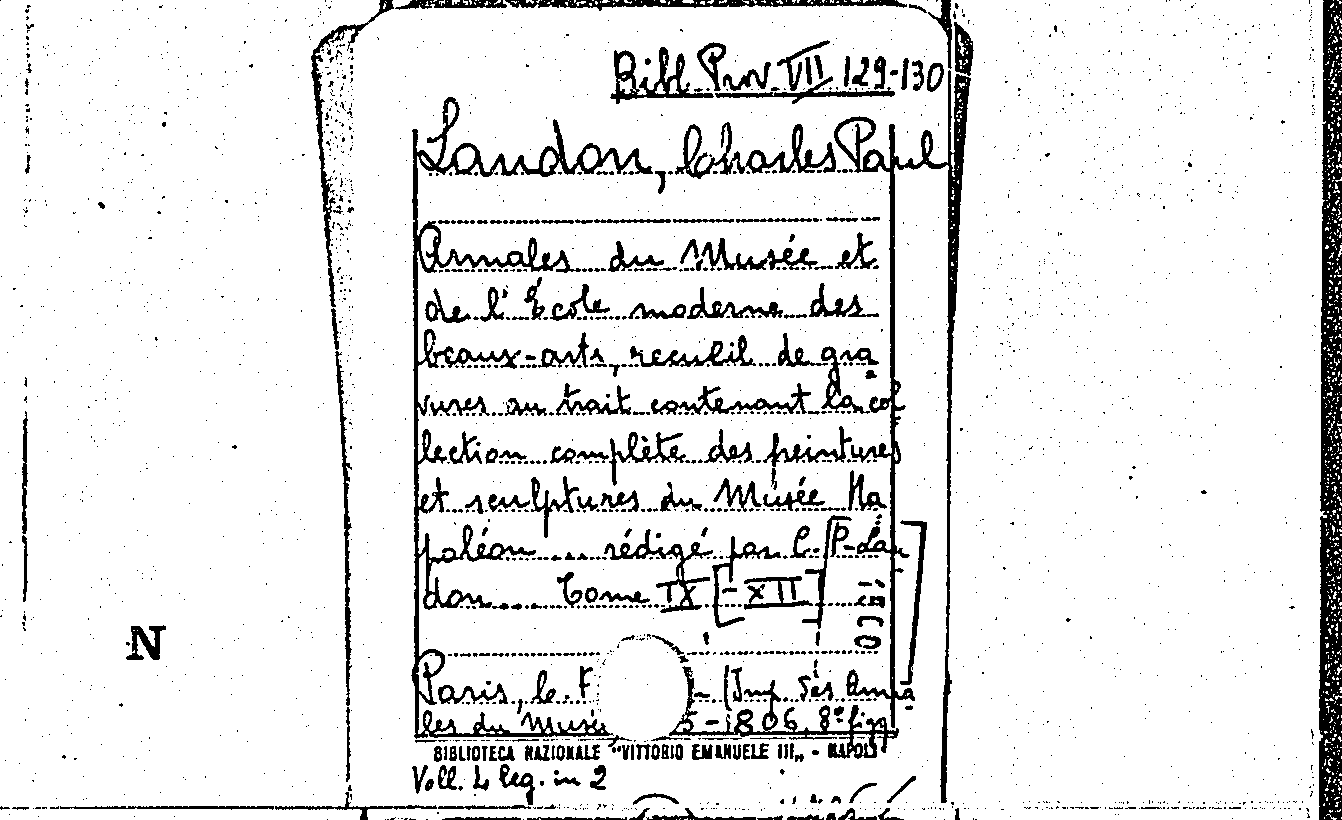 Bibl. Prov. VII 129-130
Landon, Charles Paul
Annales du Musée et
de l'École moderne des
beaux-arts, recueil de gra
vures au trait contenant la col
lection complète des peintures
et sculptures du Musée Na
poléon ... rédigé par C. P. Lan
don ... Tome IX [-XII]
N
Paris, le. - (Imp. des Anna
les du Musée 5-1806, 8° figg.
BIBLIOTECA NAZIONALE "VITTORIO EMANUELE III„ - NAPOLI
Voll. 4 leg. in 2